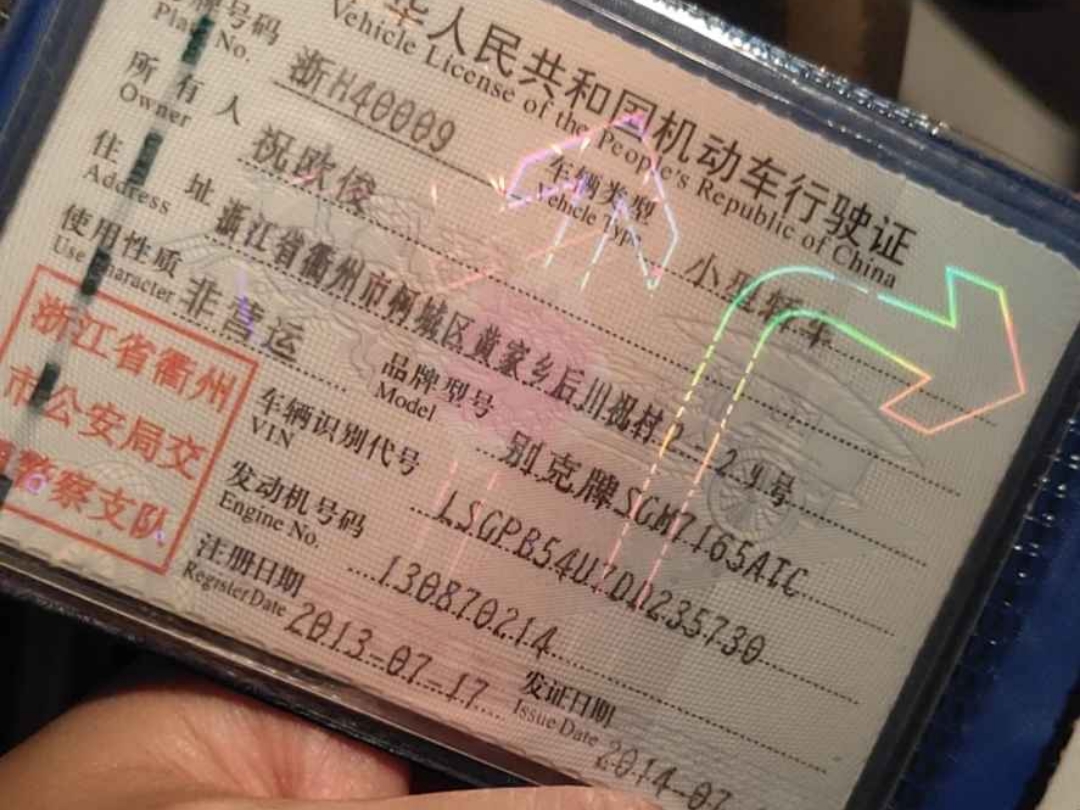 华人民共和国机动车行驶证
Vehicle License of the People's Republic of China
号牌号码 浙H40009 车辆类型 小型轿车
Plate No. Vehicle Type
所有人 祝欧俊
Owner
住址 浙江省衢州市柯城区黄家乡后川祝村2-29号
Address
使用性质 非营运 品牌型号 别克牌SGM7165ATC
Use Character Model
浙江省衢州
市公安局交
警察支队
车辆识别代号 LSGPB54U7DD235730
VIN
发动机号码 130870214
Engine No.
注册日期 2013-07-17 发证日期 2014-07
Register Date Issue Date